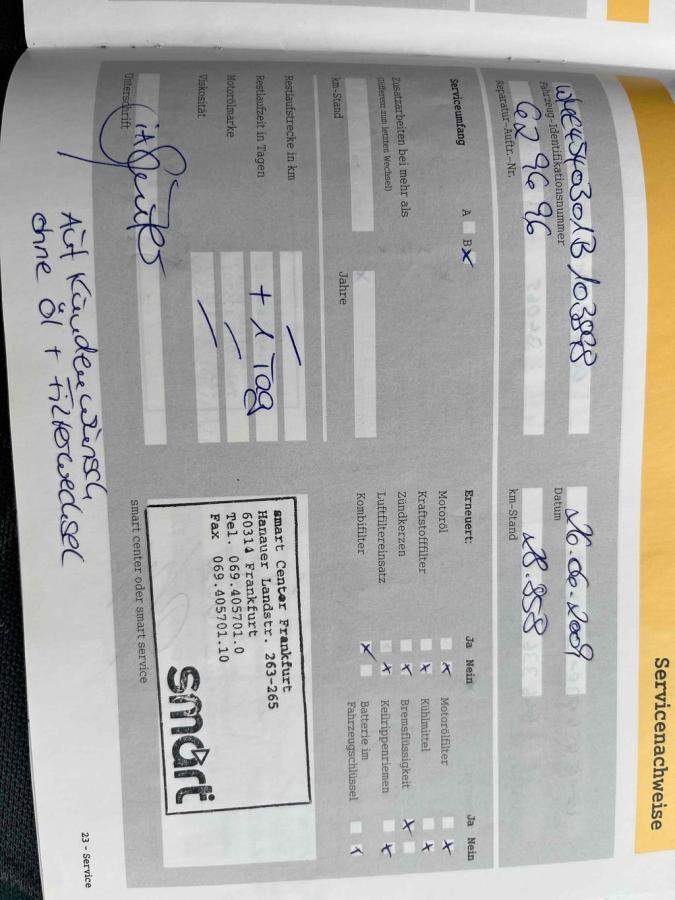 Servicenachweise
Fahrzeug-Identifikationsnummer
Datum
26.06.2009
6296696
28.858
Reparatur-Auftr.-Nr.
km-Stand
Serviceumfang
A
B x
Zusatzarbeiten bei mehr als
(Differenz zum letzten Wechsel)
km-Stand
Jahre
Erneuert:
Ja Nein
Ja Nein
Motoröl
Motorölfilter
Kraftstofffilter
Kühlmittel
Zündkerzen
Bremsflüssigkeit
Luftfiltereinsatz
Keilrippenriemen
Kombifilter
Batterie im
Fahrzeugschlüssel
Restlaufstrecke in km
Restlaufzeit in Tagen
+ 1 Tag
Motorölmarke
Viskosität
Unterschrift
smart Center Frankfurt
Hanauer Landstr. 263-265
60314 Frankfurt
Tel. 069.405701.0
Fax 069.405701.10
smart
smart center oder smart service
Auf Kundenwunsch
ohne Öl + Filterwechsel
23 - Service